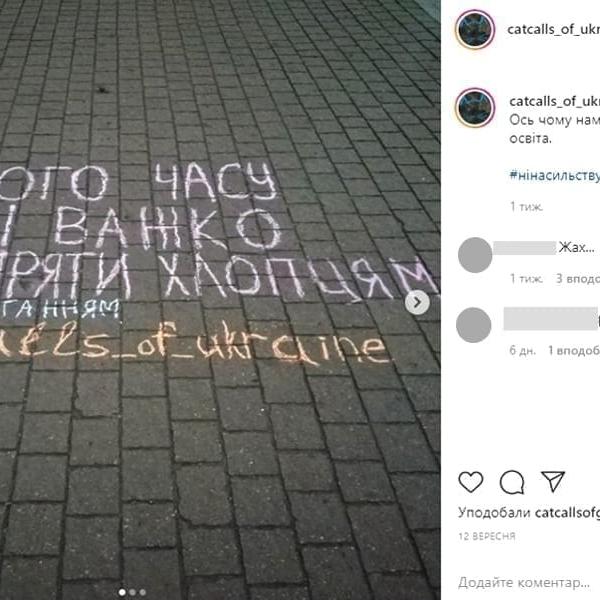 ОГО ЧАСУ
І ВАЖКО
РЯТИ ХЛОПЦЯМ
ГАННЯМ
lls_of_ukraine
catcalls_of_ukr
catcalls_of_ukr
Ось чому нам
освіта.
#нінасильству
1 тиж.
Жах...
1 тиж. 3 вподо
6 дн. 1 вподоб
Уподобали catcallsofg
12 ВЕРЕСНЯ
Додайте коментар...